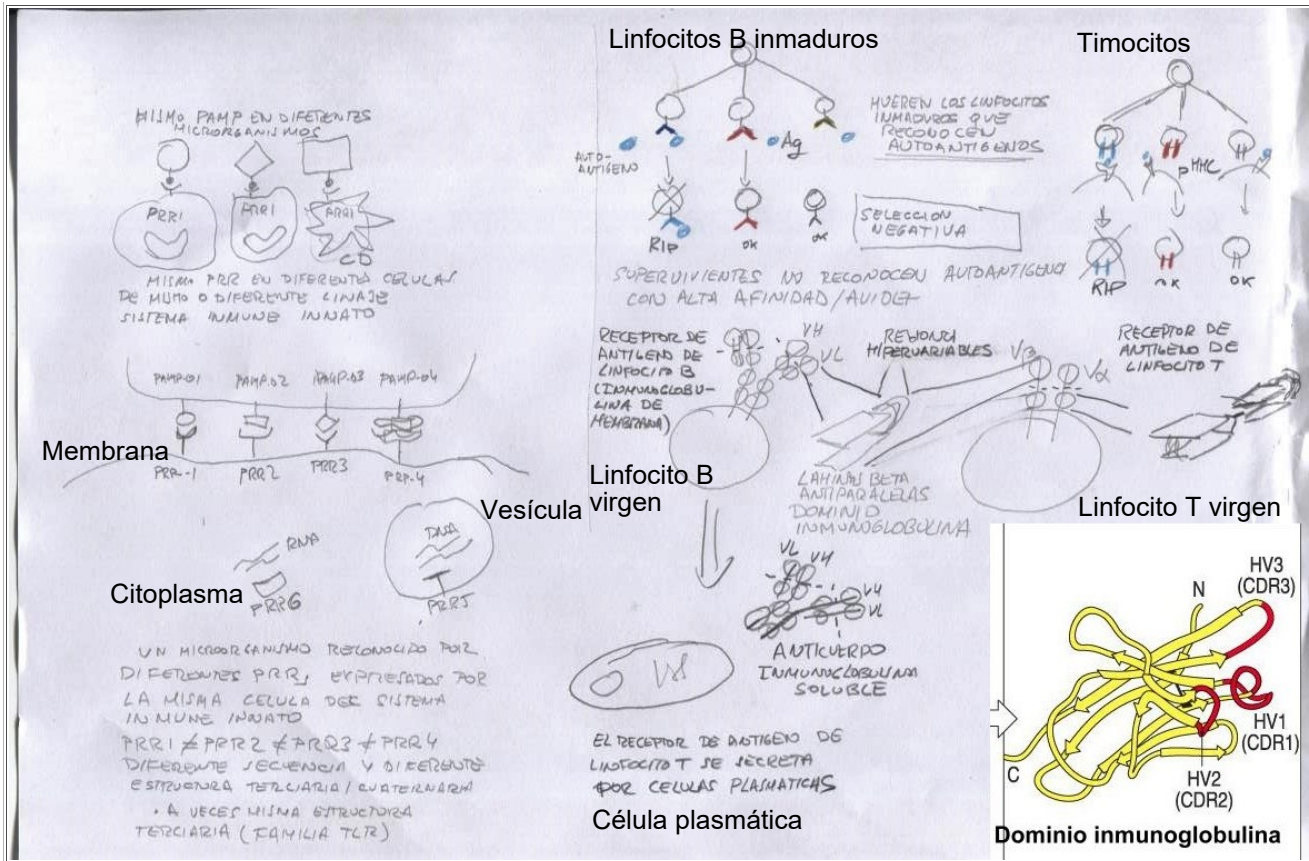 MISMO PAMP EN DIFERENTES
MICRORGANISMOS
PRR1
PRR1
PRR1
CD
MISMO PRR EN DIFERENTES CELULAS
DE MISMO O DIFERENTE LINAJE
SISTEMA INMUNE INNATO
PAMP-01 PAMP-02 PAMP-03 PAMP-04
Membrana
PRR-1 PRR2 PRR3 PRR-4
Vesícula
DNA
PRR5
RNA
Citoplasma
PRR6
UN MICROORGANISMO RECONOCIDO POR
DIFERENTES PRRs EXPRESADOS POR
LA MISMA CELULA DEL SISTEMA
INMUNE INNATO
PRR1 ≠ PRR2 ≠ PRR3 ≠ PRR4
DIFERENTE SECUENCIA Y DIFERENTE
ESTRUCTURA TERCIARIA/CUATERNARIA
• A VECES MISMA ESTRUCTURA
TERCIARIA (FAMILIA TLR)
Linfocitos B inmaduros
AUTO-
ANTIGENO
Ag
RIP
OK
OK
MUEREN LOS LINFOCITOS
INMADUROS QUE
RECONOCEN
AUTOANTIGENOS
SELECCION
NEGATIVA
SUPERVIVIENTES NO RECONOCEN AUTOANTIGENO
CON ALTA AFINIDAD/AVIDEZ
Timocitos
pMHC
RIP
OK
OK
RECEPTOR DE
ANTIGENO DE
LINFOCITO B
(INMUNOGLOBU-
LINA DE
MEMBRANA)
VH
VL
REGIONES
HIPERVARIABLES
Vβ
Vα
RECEPTOR DE
ANTIGENO DE
LINFOCITO T
Linfocito B
virgen
LAMINAS BETA
ANTIPARALELAS
DOMINIO
INMUNOGLOBULINA
Linfocito T virgen
VL VH
VH
VL
ANTICUERPO
INMUNOGLOBULINA
SOLUBLE
EL RECEPTOR DE ANTIGENO DE
LINFOCITO T SE SECRETA
POR CELULAS PLASMATICAS
Célula plasmática
HV3
(CDR3)
N
HV1
(CDR1)
C
HV2
(CDR2)
Dominio inmunoglobulina